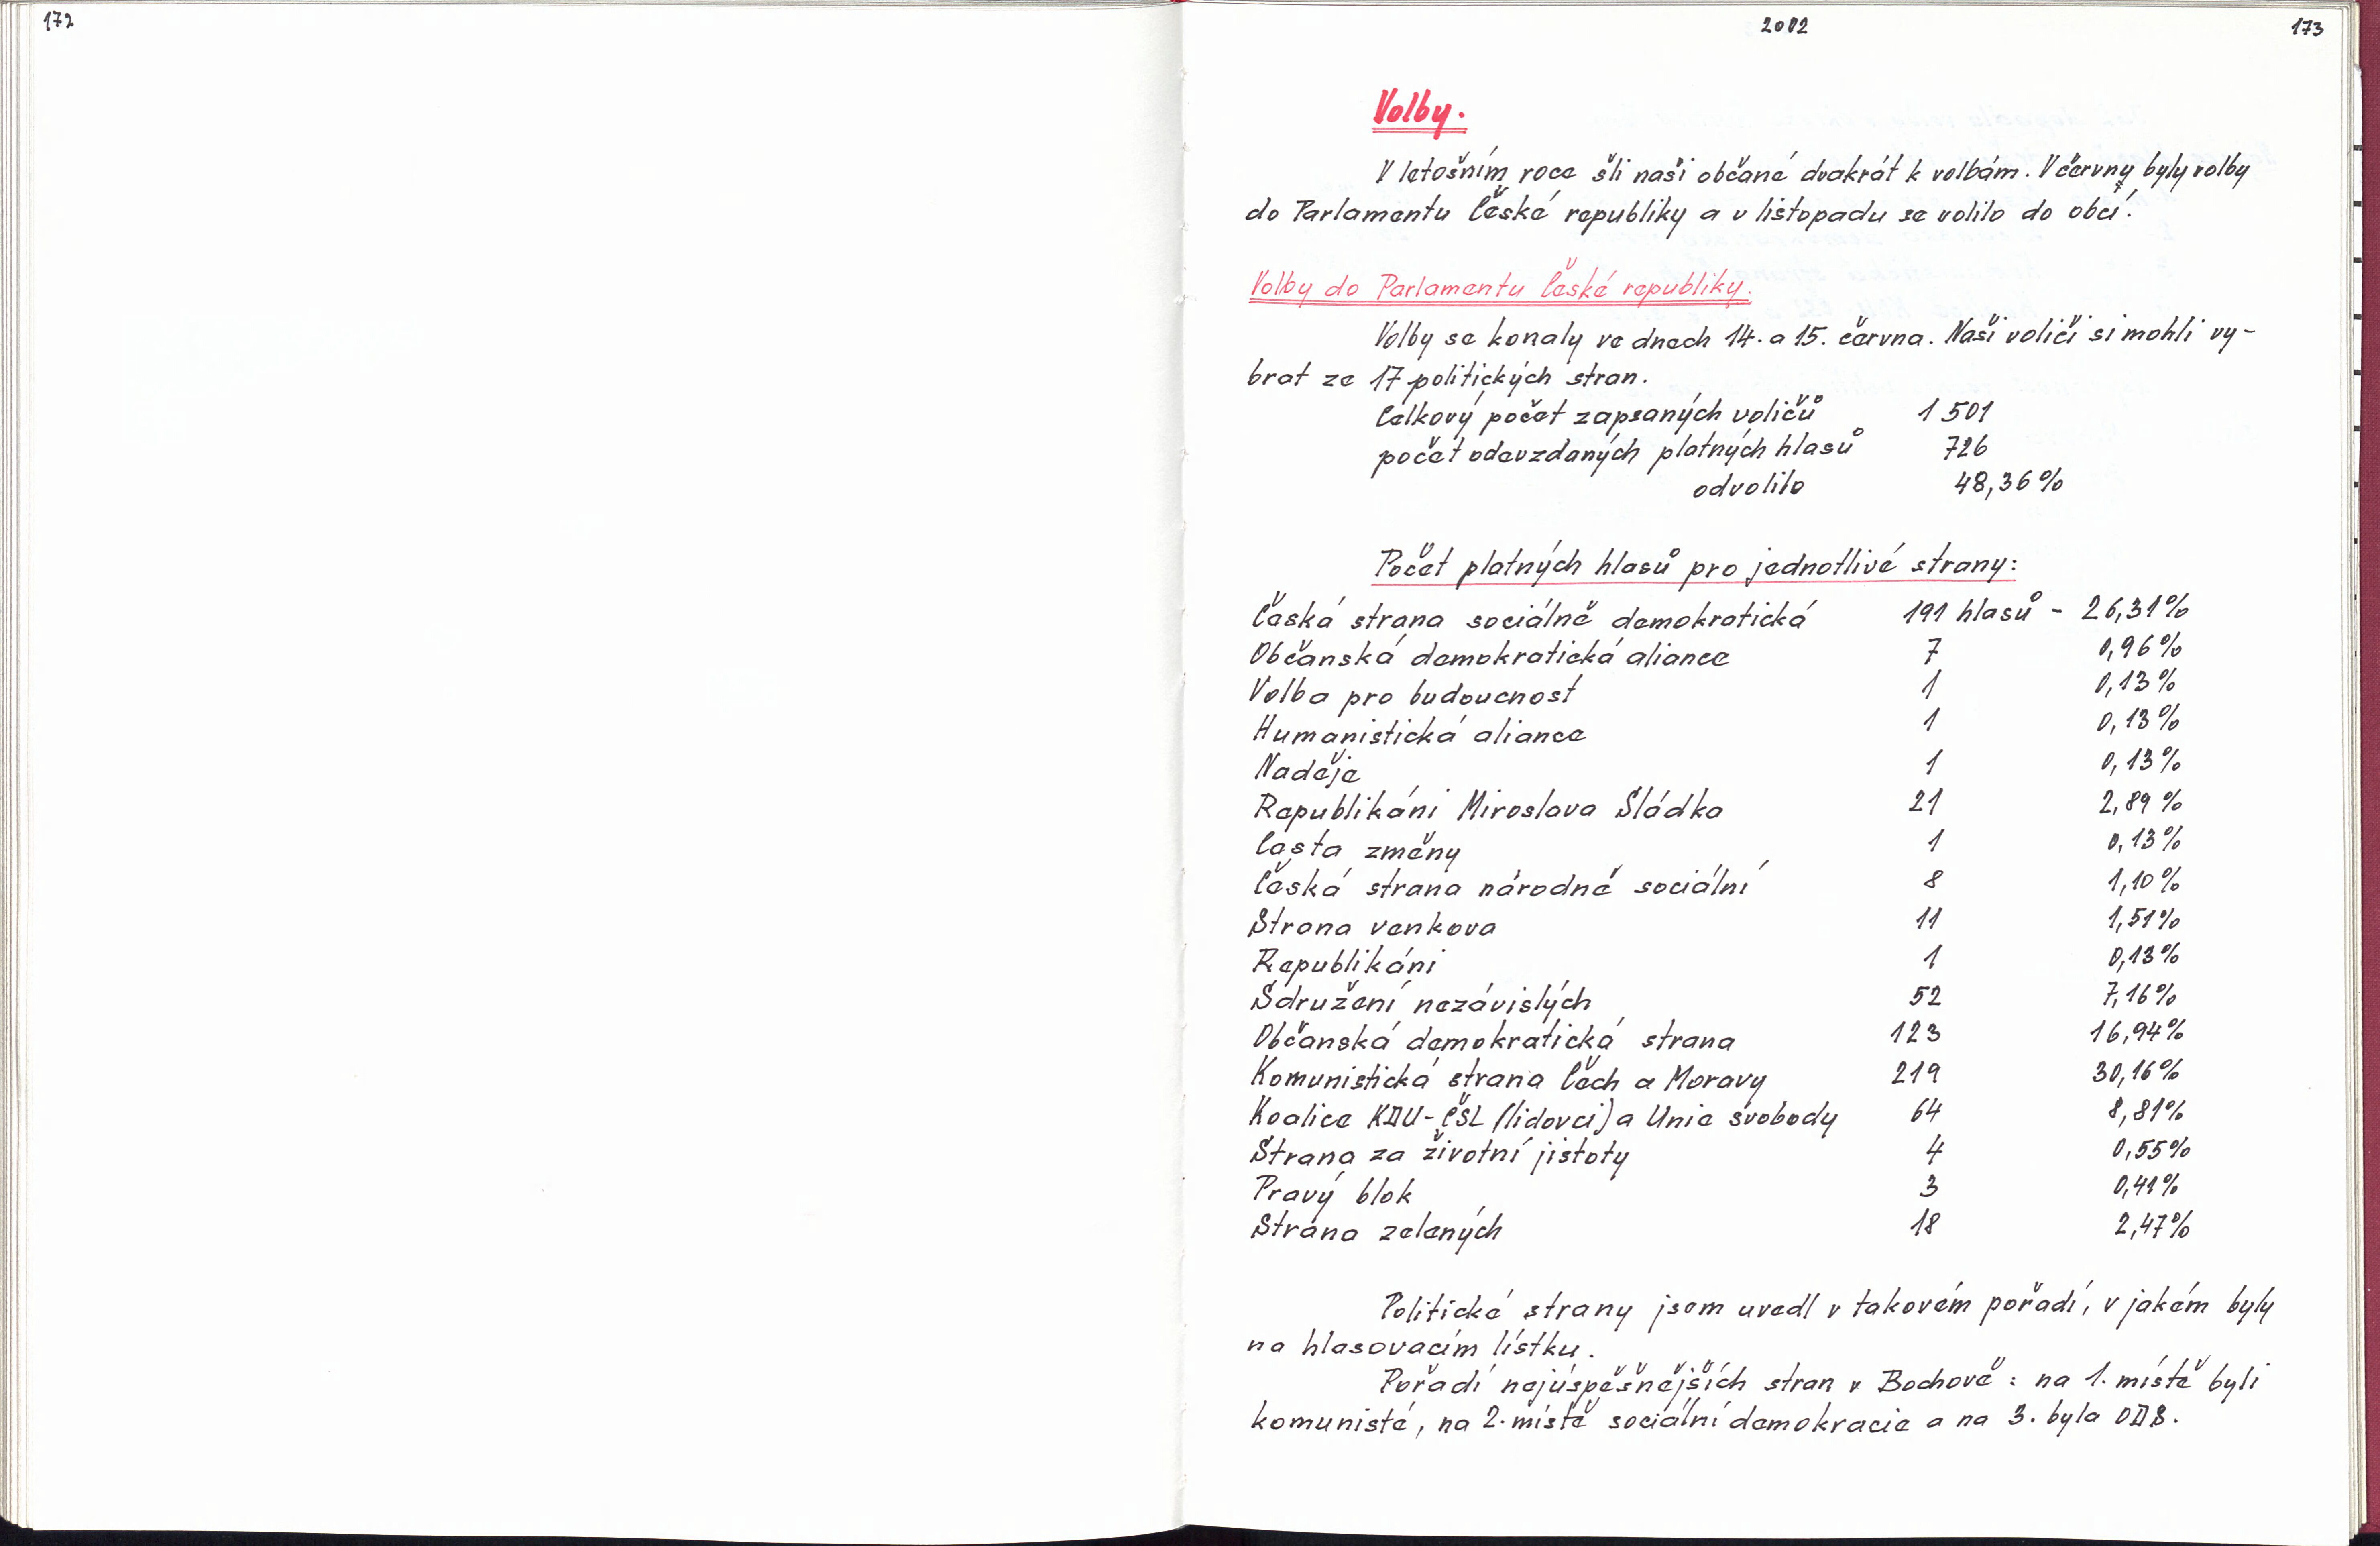 172
2002
173
Volby.
V letošním roce šli naši občané dvakrát k volbám. V červny byly volby
do Parlamentu České republiky a v listopadu se volilo do obcí.
Volby do Parlamentu České republiky.
Volby se konaly ve dnech 14. a 15. června. Naši voliči si mohli vy-
brat ze 17 politických stran.
Celkový počet zapsaných voličů 1 501
počet odevzdaných platných hlasů 726
odvolilo 48,36 %
Počet platných hlasů pro jednotlivé strany:
Česká strana sociálně demokratická 191 hlasů - 26,31 %
Občanská demokratická aliance 7 0,96 %
Volba pro budoucnost 1 0,13 %
Humanistická aliance 1 0,13 %
Naděje 1 0,13 %
Republikáni Miroslava Sládka 21 2,89 %
Cesta změny 1 0,13 %
Česká strana národně sociální 8 1,10 %
Strana venkova 11 1,51 %
Republikáni 1 0,13 %
Sdružení nezávislých 52 7,16 %
Občanská demokratická strana 123 16,94 %
Komunistická strana Čech a Moravy 219 30,16 %
Koalice KDU-ČSL (lidovci) a Unie svobody 64 8,81 %
Strana za životní jistoty 4 0,55 %
Pravý blok 3 0,41 %
Strana zelených 18 2,47 %
Politické strany jsem uvedl v takovém pořadí, v jakém byly
na hlasovacím lístku.
Pořadí nejúspěšnějších stran v Bochově : na 1. místě byli
komunisté, na 2. místě sociální demokracie a na 3. byla ODS.